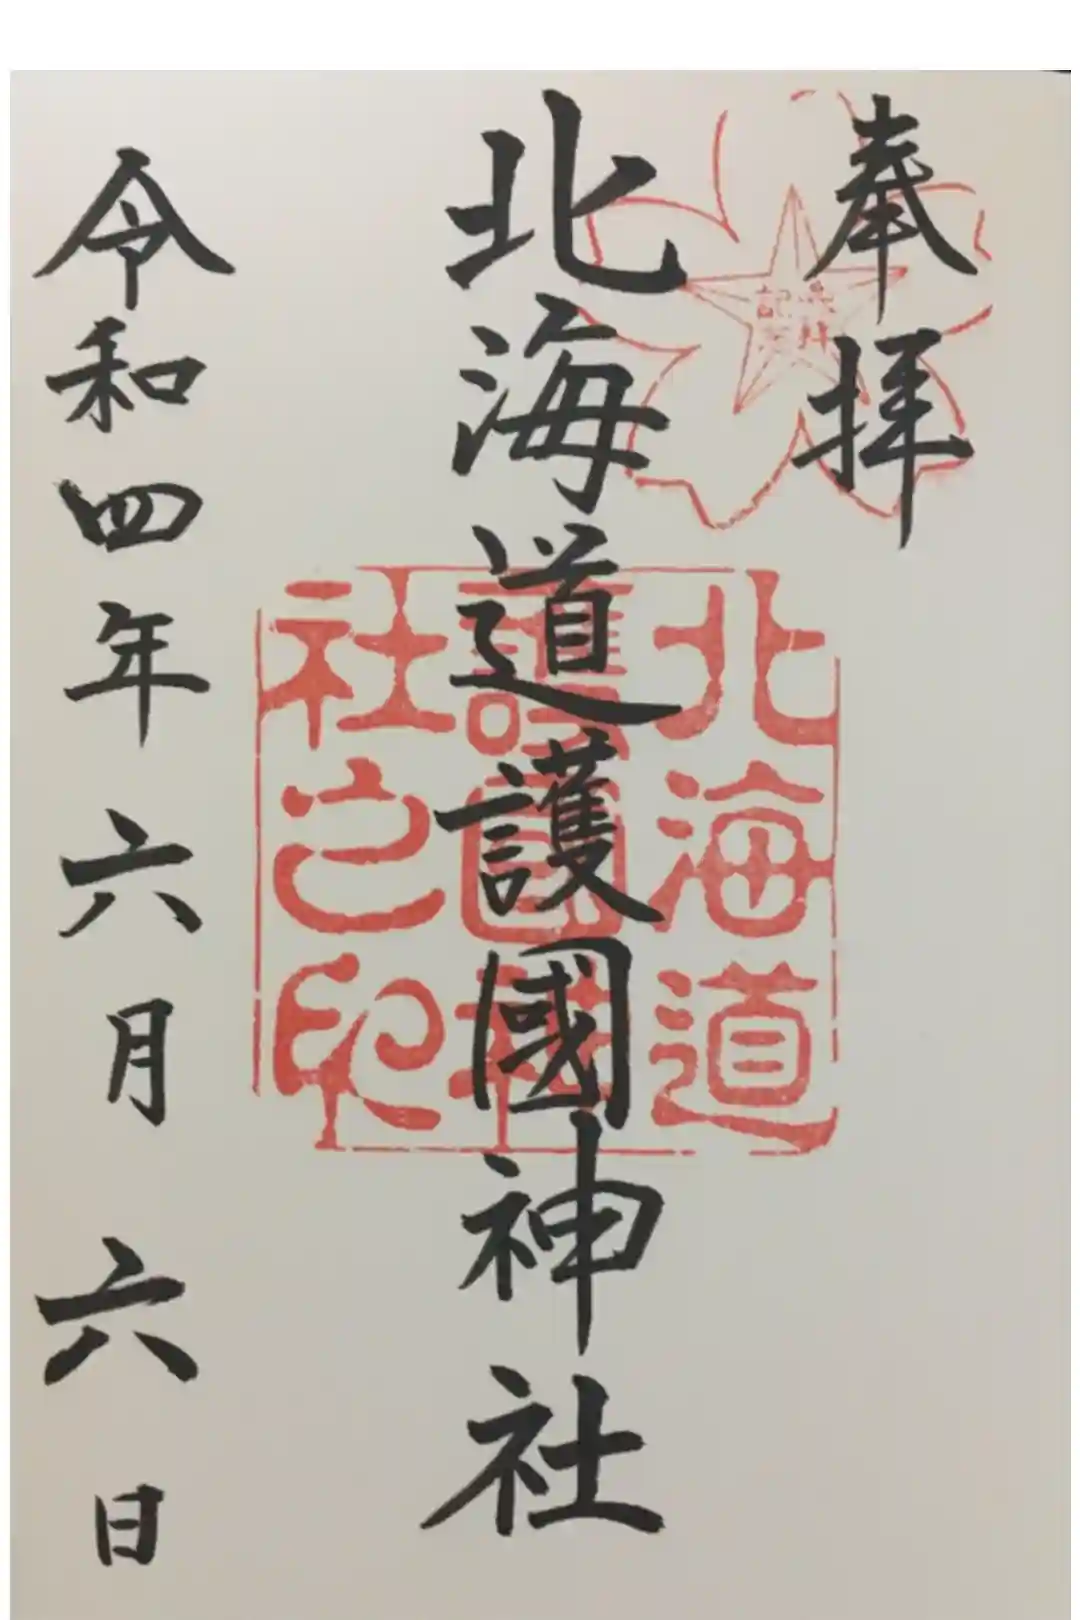 奉拝
参拝
記念
北海道護國神社
北海道
護國神
社之印
令和四年六月六日